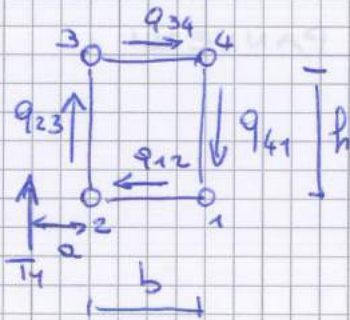 q34
3 4
q23 q41 h
q12
2 1
a
Ty
b